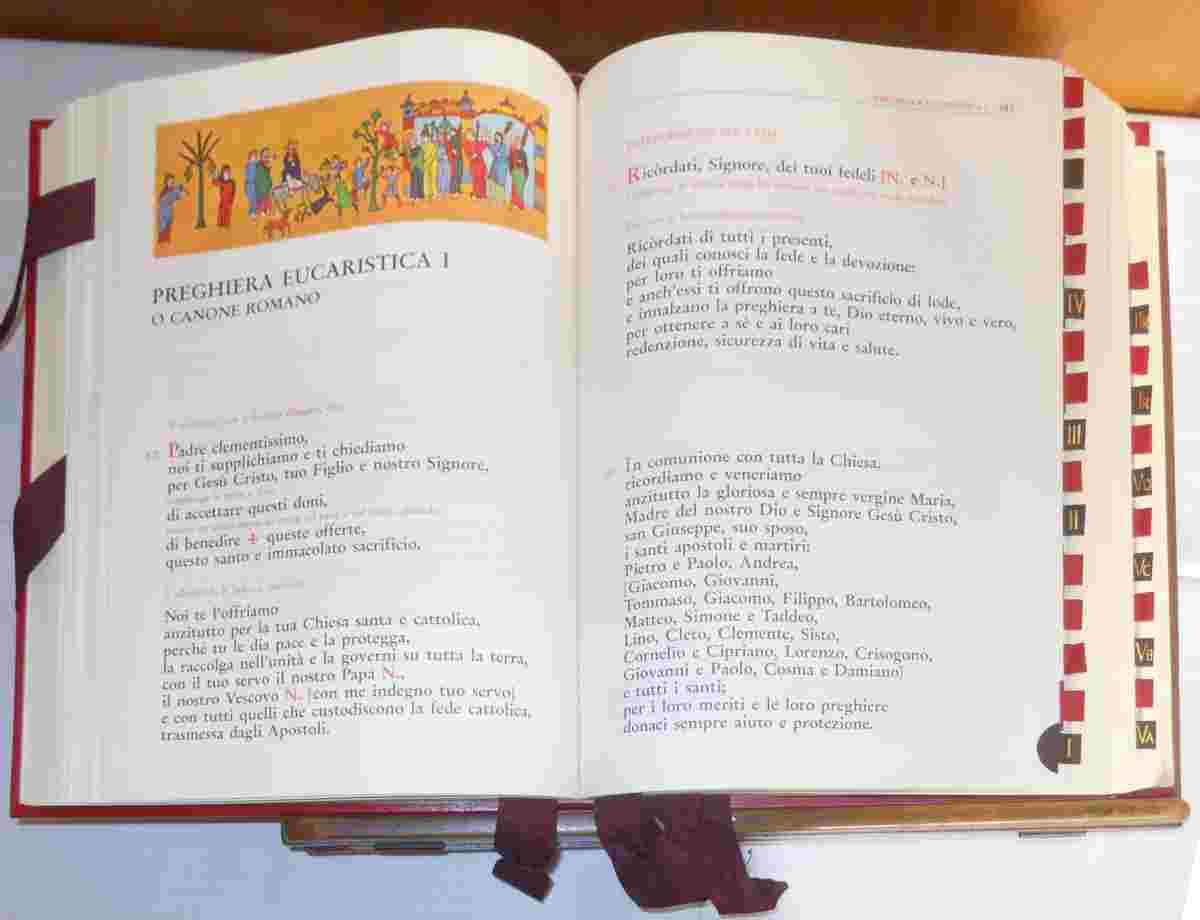 PREGHIERA EUCARISTICA I
O CANONE ROMANO
Padre clementissimo,
noi ti supplichiamo e ti chiediamo
per Gesù Cristo, tuo Figlio e nostro Signore,
di accettare questi doni,
di benedire ✠ queste offerte,
questo santo e immacolato sacrificio.
Noi te l'offriamo
anzitutto per la tua Chiesa santa e cattolica,
perché tu le dia pace e la protegga,
la raccolga nell'unità e la governi su tutta la terra,
con il tuo servo il nostro Papa N.,
il nostro Vescovo N. [con me indegno tuo servo]
e con tutti quelli che custodiscono la fede cattolica,
trasmessa dagli Apostoli.
Ricòrdati, Signore, dei tuoi fedeli [N. e N.].
Ricòrdati di tutti i presenti,
dei quali conosci la fede e la devozione:
per loro ti offriamo
e anch'essi ti offrono questo sacrificio di lode,
e innalzano la preghiera a te, Dio eterno, vivo e vero,
per ottenere a sé e ai loro cari
redenzione, sicurezza di vita e salute.
In comunione con tutta la Chiesa,
ricordiamo e veneriamo
anzitutto la gloriosa e sempre vergine Maria,
Madre del nostro Dio e Signore Gesù Cristo,
san Giuseppe, suo sposo,
i santi apostoli e martiri:
Pietro e Paolo, Andrea,
[Giacomo, Giovanni,
Tommaso, Giacomo, Filippo, Bartolomeo,
Matteo, Simone e Taddeo,
Lino, Cleto, Clemente, Sisto,
Cornelio e Cipriano, Lorenzo, Crisogono,
Giovanni e Paolo, Cosma e Damiano]
e tutti i santi;
per i loro meriti e le loro preghiere
donaci sempre aiuto e protezione.
IV
III
II
I
VC
VB
VA